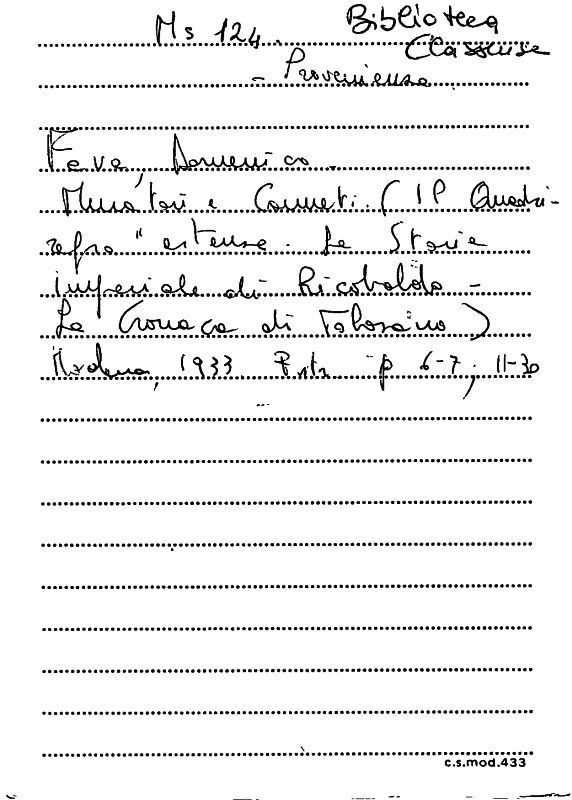 Ms 124. Biblioteca
Classense
- Provenienza
Fava, Domenico.
Muratori e Canneti. (Il Quadri-
regio" estense. La Storia
imperiale di Ricobaldo -
La Cronaca di Tolosano)
Modena, 1933 p 6-7, 11-30
c.s.mod.433